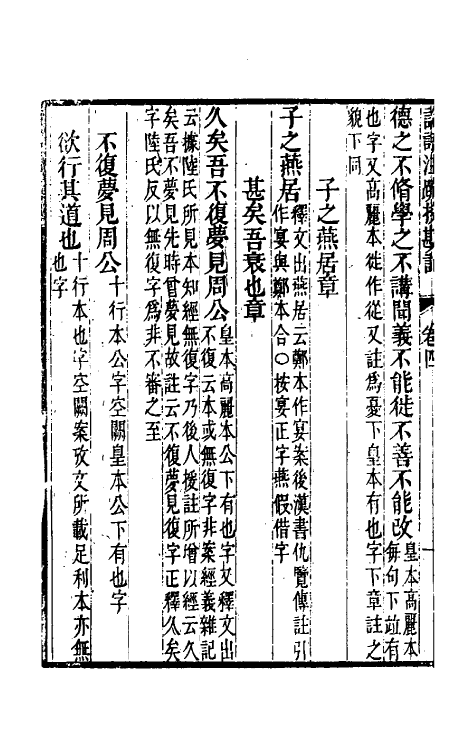 論語注疏挍勘記 卷四 一
德之不脩學之不講聞義不能徙不善不能改皇本高麗本每句下竝有
也字又高麗本徙作從又註爲憂下皇本有也字下章註之
貌下同
子之燕居章
子之燕居釋文出燕居云鄭本作宴案後漢書仇覽傳註引
作宴與鄭本合○按宴正字燕假借字
甚矣吾衰也章
久矣吾不復夢見周公皇本高麗本公下有也字又釋文出
不復云本或無復字非案經義雜記
云據陸氏所見本知經無復字乃後人援註所增以經云久
矣吾不夢見先時曾夢見故註云不復夢見復字正釋久矣
字陸氏反以無復字爲非不審之至
不復夢見周公十行本公字空闕皇本公下有也字
欲行其道也十行本也字空闕案攷文所載足利本亦無
也字